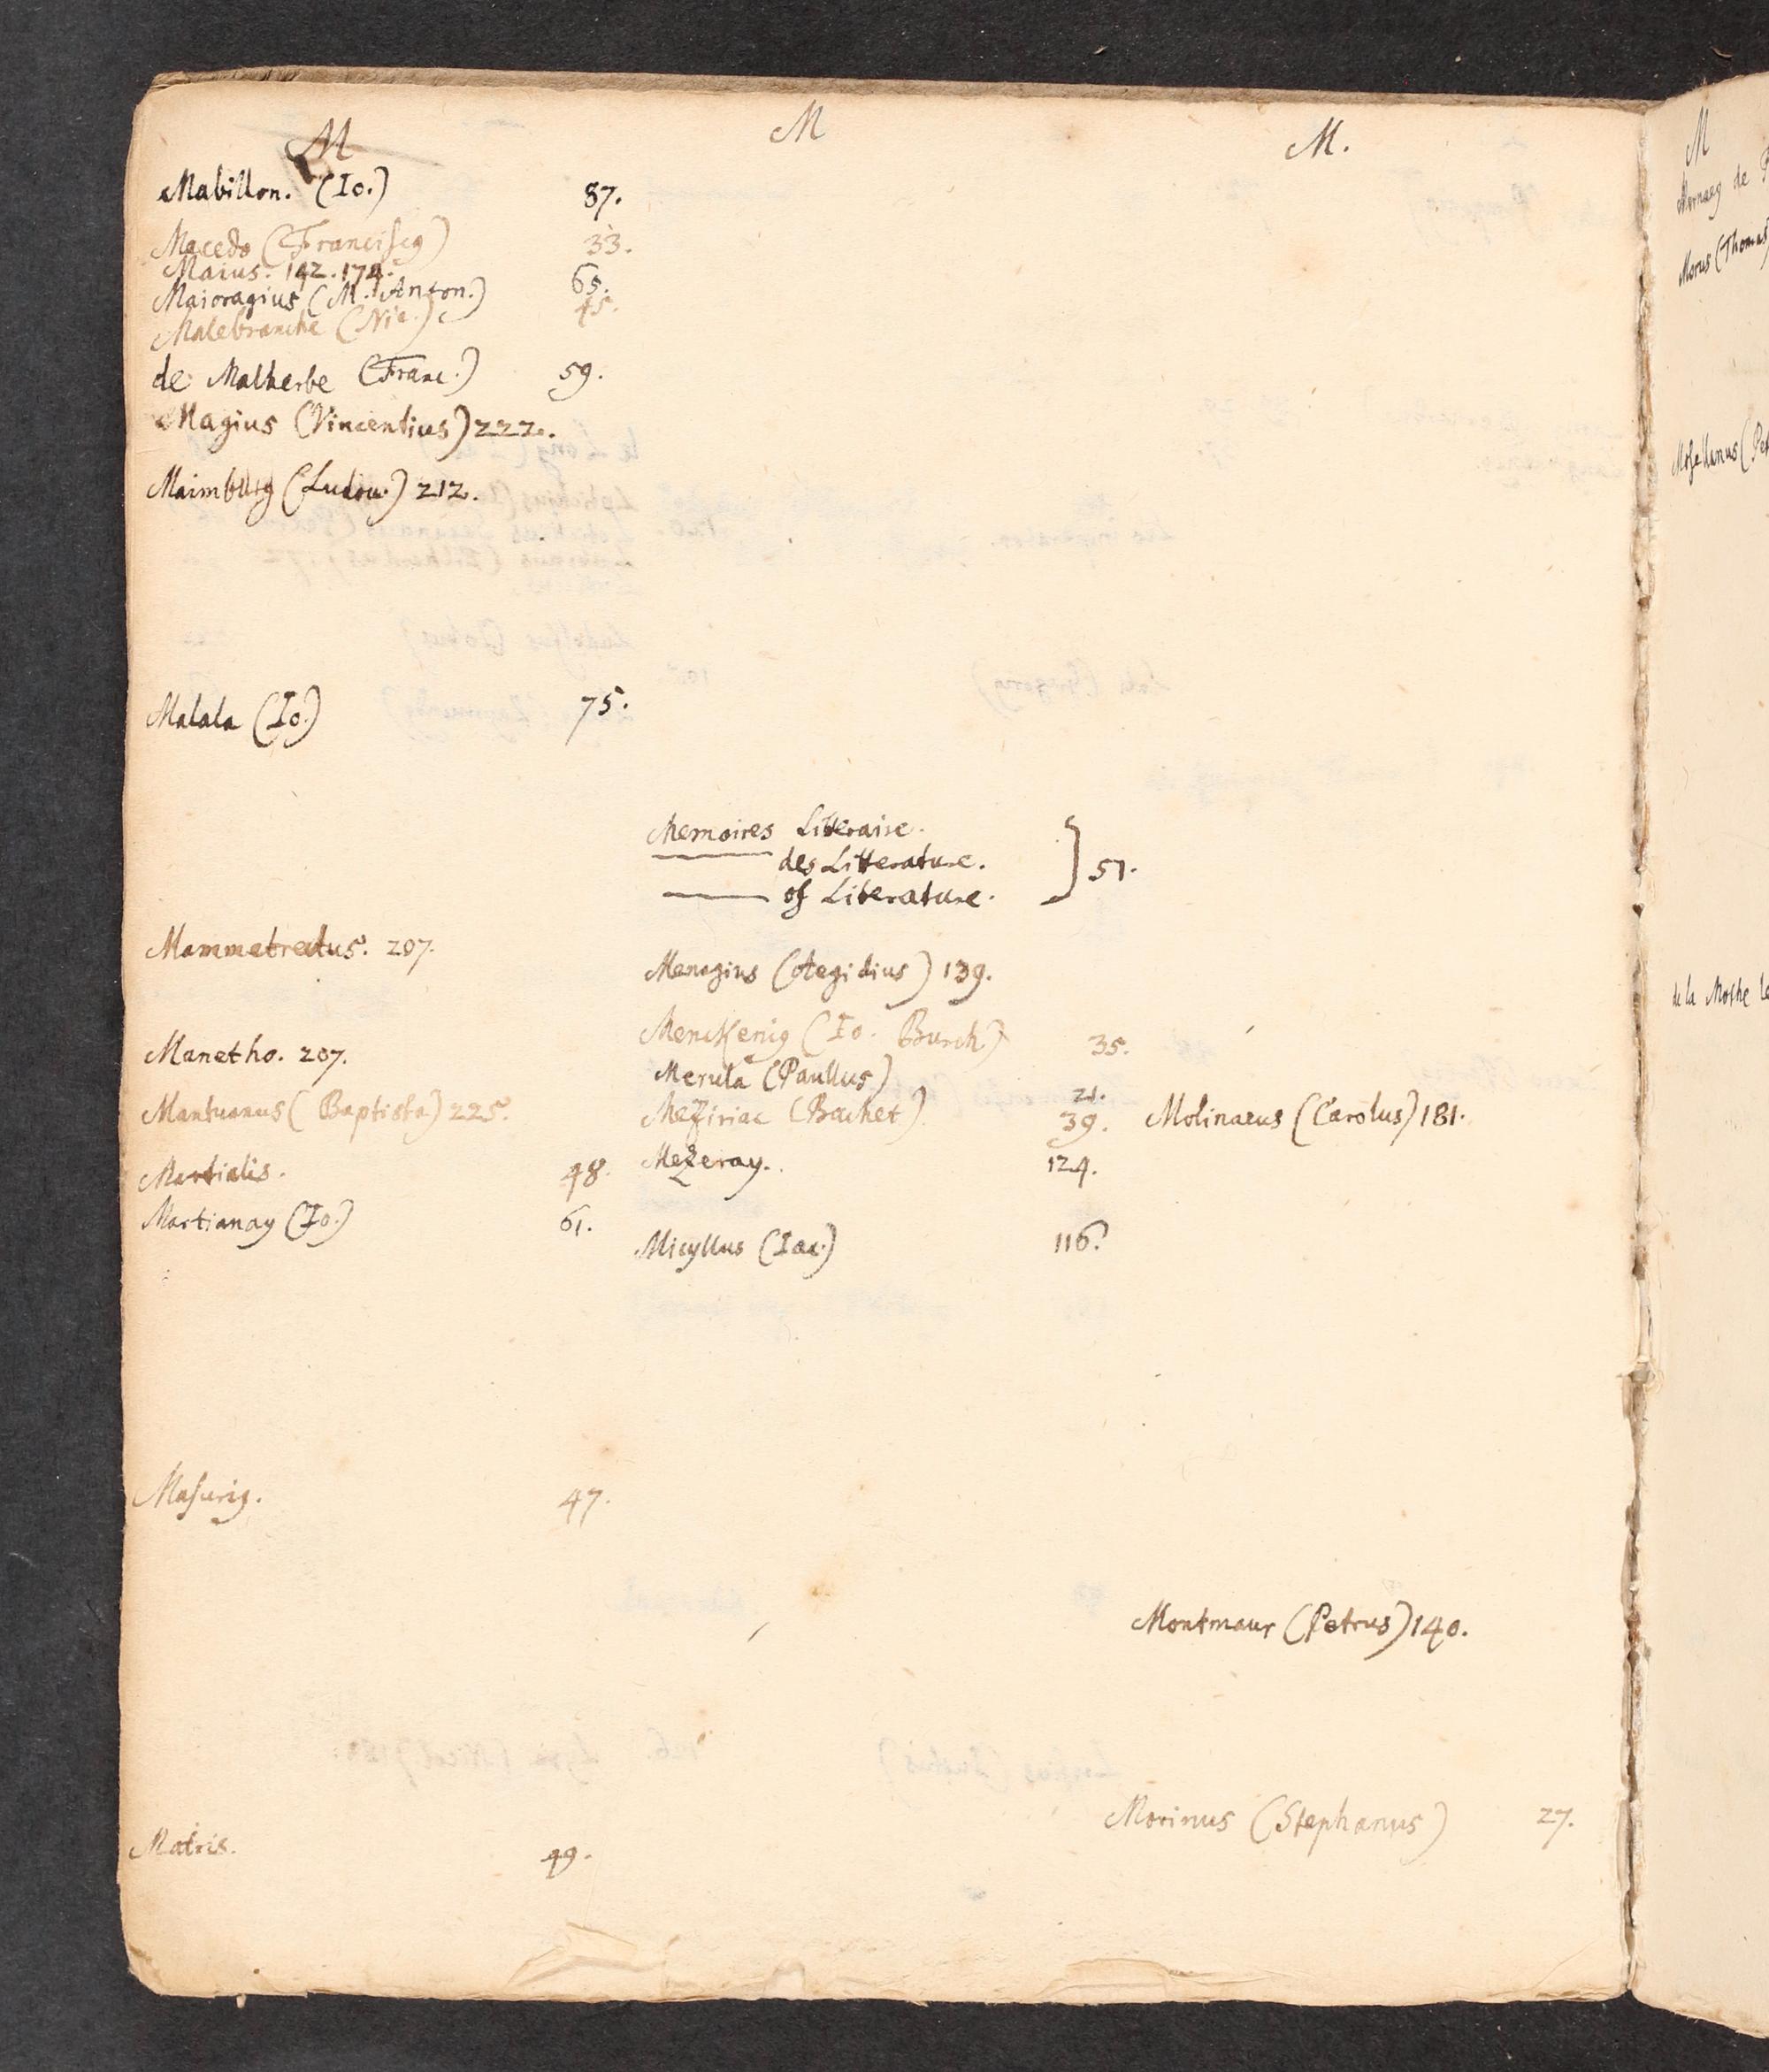 M
Mabillon. (Io.) 87.
Macedo (Franciscꝯ) 33.
Maius. 142. 174.
Maioragius (M. Anton.) 65.
Malebranche (Nic.) 45.
de Malherbe (Franc.) 59.
Magius (Vincentius) 222.
Maimburg (Ludov.) 212.
Malala (Io.) 75.
Mammetrectus. 207.
Manetho. 207.
Mantuanus (Baptista) 225.
Martialis. 48.
Martianay (Io.) 61.
Masuriꝯ. 47.
Matris. 49.
M
Memoires Literaire.
—— des Litterature. } 51.
—— of Literature.
Menagius (Aegidius) 139.
Menckeniꝯ (Io. Burch) 35.
Merula (Paullus) 21.
Meziriac (Bachet) 39.
Mezeray. 124.
Micyllus (Iac.) 116.
M.
Molinaeus (Carolus) 181.
Montmaur (Petrus) 140.
Morinus (Stephanus) 27.
M
de
Morus (Thomas)
Mosellanus
de la Mothe